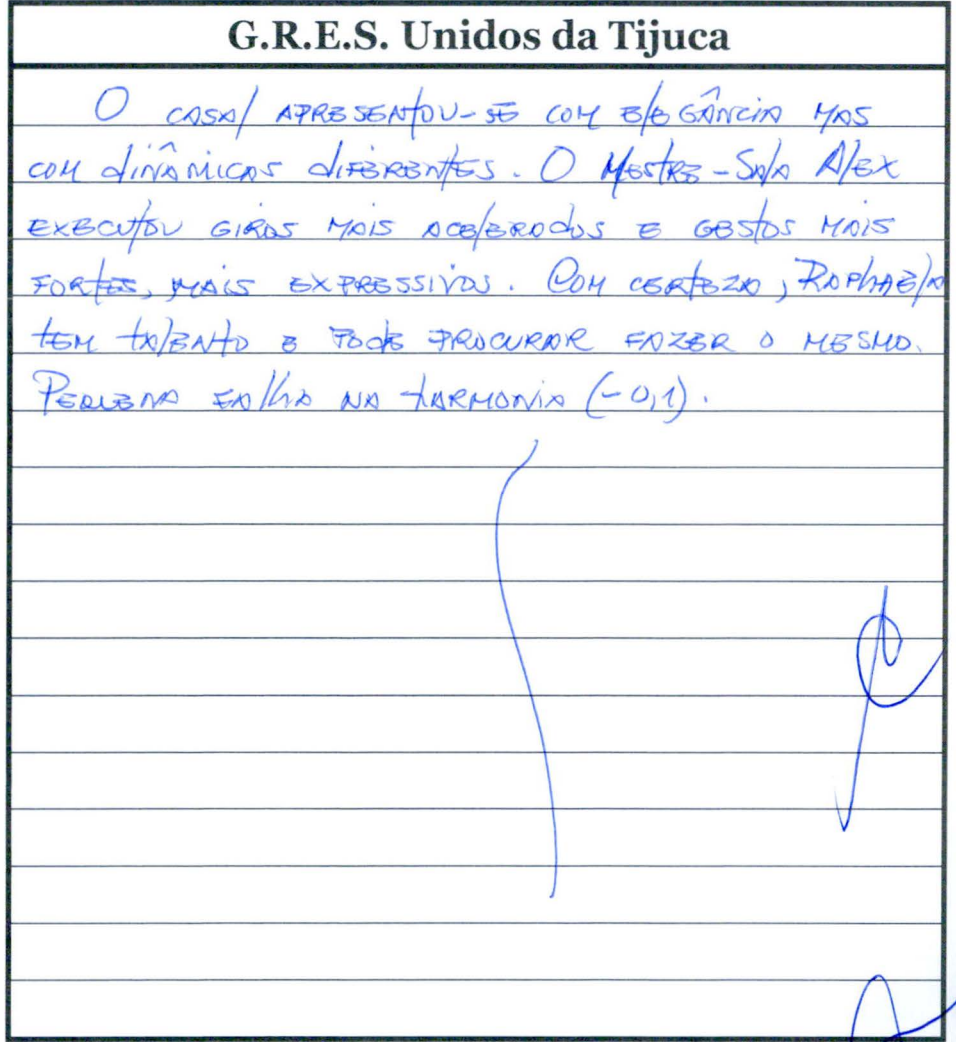 G.R.E.S. Unidos da Tijuca
O CASAL APRESENTOU-SE COM ELEGÂNCIA MAS
COM DINÂMICAS DIFERENTES. O MESTRE-SALA ALEX
EXECUTOU GIROS MAIS ACELERADOS E GESTOS MAIS
FORTES, MAIS EXPRESSIVOS. COM CERTEZA, RAPHAELA
TEM TALENTO E PODE PROCURAR FAZER O MESMO.
PEQUENA FALHA NA HARMONIA (-0,1).